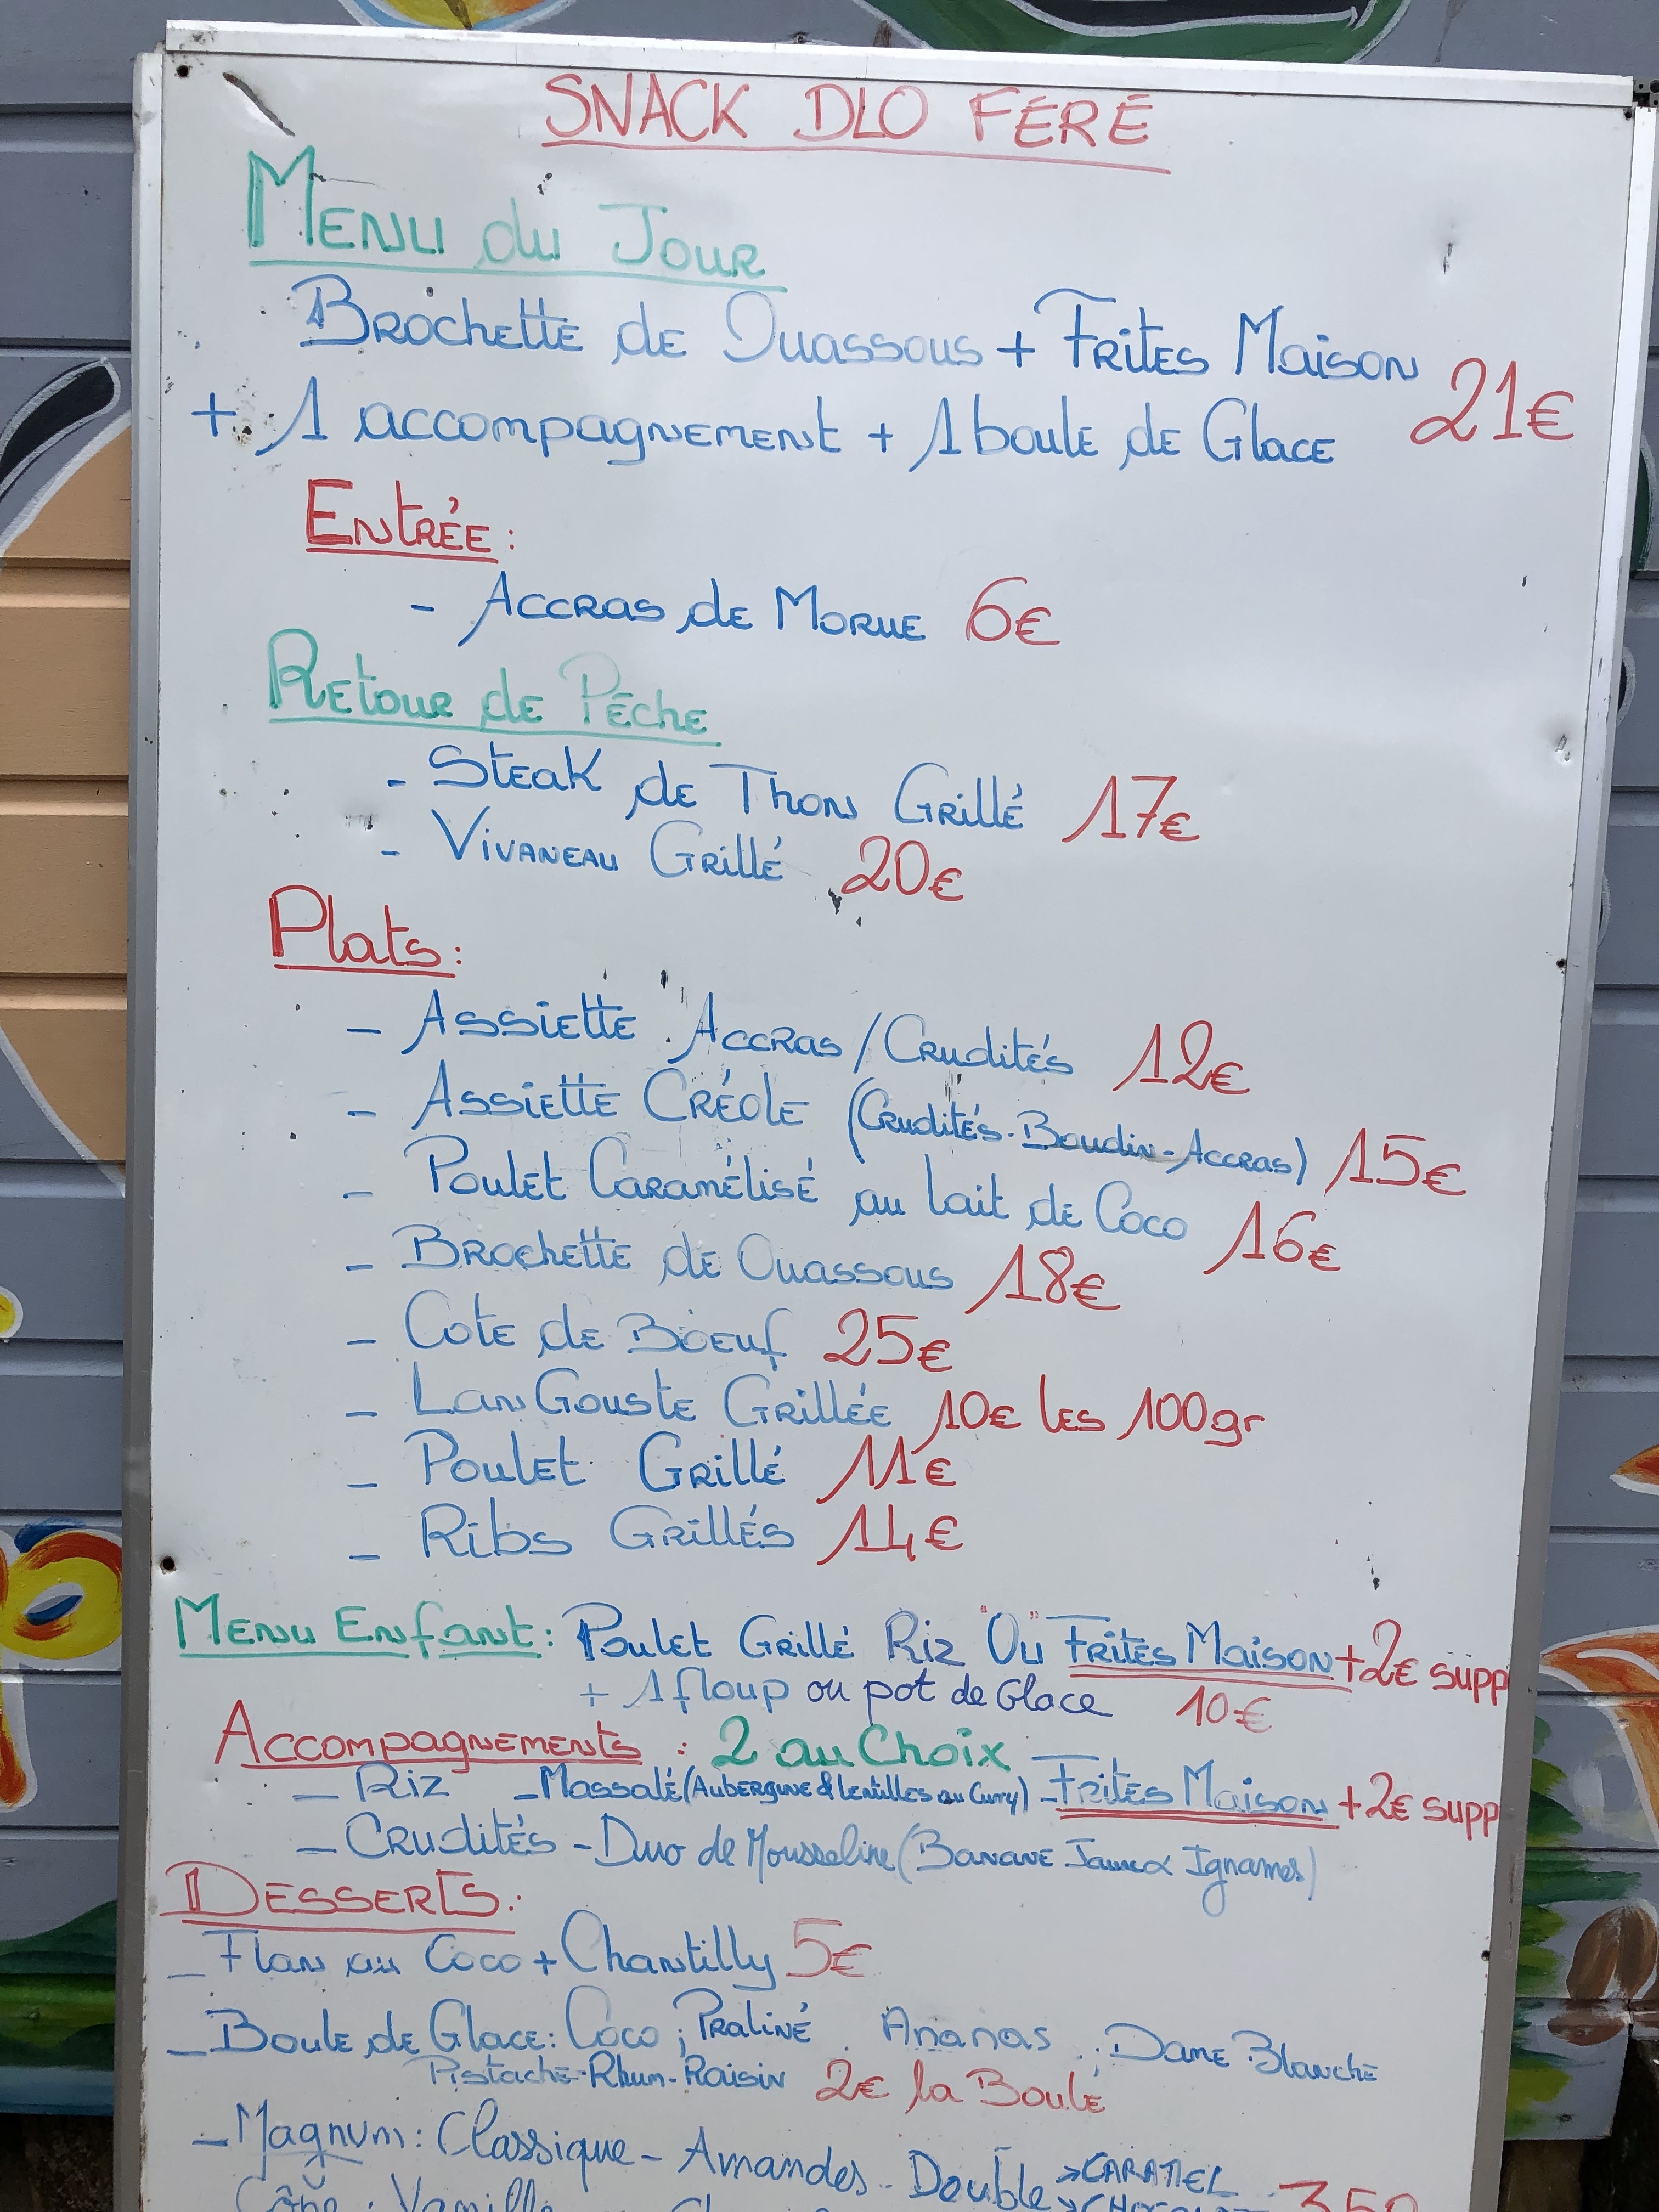 SNACK DLO FÉRÉ
MENU du JOUR
BROCHETTE de OUASSOUS + FRITES MAISON
+ 1 accompagnement + 1 boule de Glace 21€
ENTRÉE :
- ACCRAS de MORUE 6€
RETOUR de PÊche
- STEAK de Thon Grillé 17€
- VIVANEAU Grillé 20€
Plats :
- ASSIETTE Accras/Crudités 12€
- ASSIETTE CRÉOLE (Crudités-Boudin-Accras) 15€
- Poulet Caramélisé au lait de Coco 16€
- BROCHETTE de Ouassous 18€
- Cote de Boeuf 25€
- LanGouste Grillée 10€ les 100gr
- Poulet Grillé 11€
- Ribs Grillés 14€
MENU Enfant : Poulet Grillé Riz "Ou" Frites Maison +2€ supp
+ 1 floup ou pot de Glace 10€
Accompagnements : 2 au Choix
- Riz - Massalé (Aubergine & lentilles au Curry) - Frites Maison +2€ supp
- Crudités - Duo de Mousseline (Banane Jaune & Ignames)
DESSERTS :
- Flan au Coco + Chantilly 5€
- Boule de Glace : Coco ; Praliné . Ananas . ; Dame Blanche
Pistache-Rhum-Raisin 2€ la Boule
- Magnum : Classique - Amandes - Double > CARAMEL
Cône : Vanille